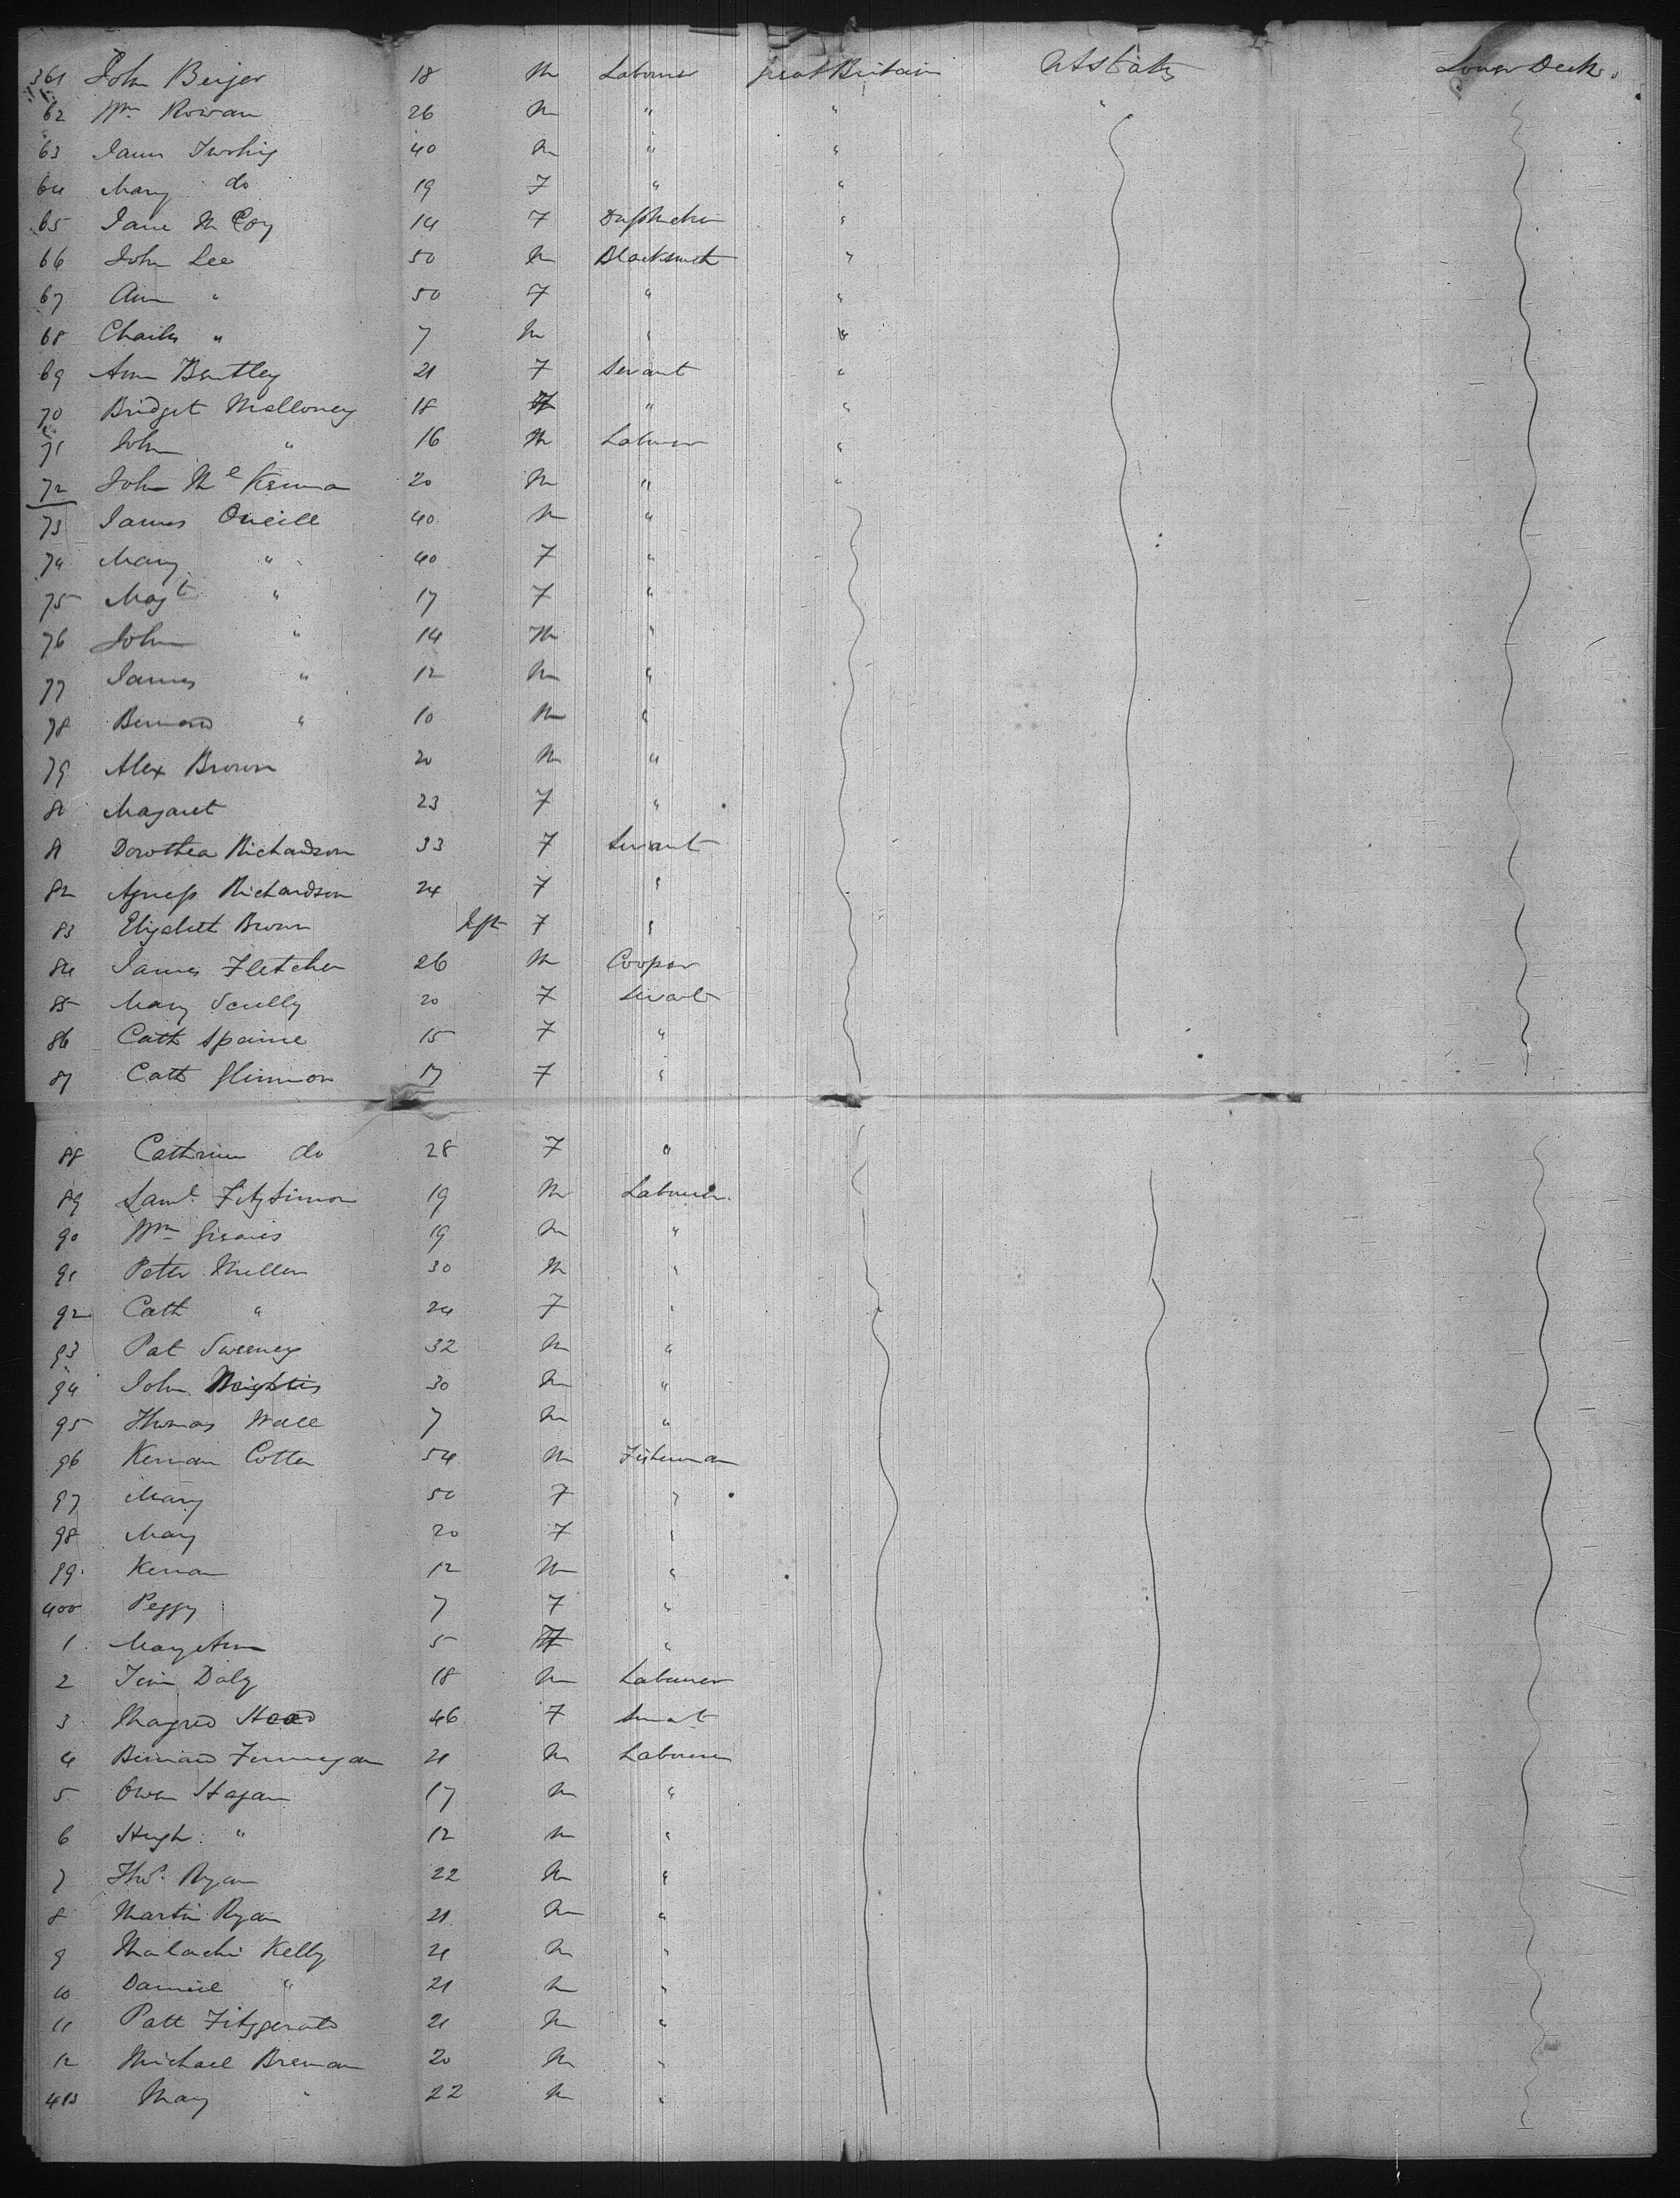 361 John Berger 18 M Labourer Great Britain U States Lower Deck
62 Wm Rowan 26 M " " "
63 James Twohig 40 M " "
64 Mary do 19 F " "
65 Jane McCoy 14 F "
66 John Lee 50 M Blacksmith "
67 Ann " 50 F " "
68 Charles " 7 M " "
69 Ann Bentley 21 F Servant "
70 Bridget Malloney 18 F " "
71 John " 16 M Labourer "
72 John McKenna 20 M " "
73 James Oneill 40 M "
74 Mary " 40 F "
75 Magt " 17 F "
76 John " 14 M "
77 James " 12 M "
78 Bernard " 10 M "
79 Alex Brown 20 M "
80 Magaret 23 F "
81 Dorothea Richardson 33 F Servant
82 Agness Richardson 24 F "
83 Elizabett Brown Inft F "
84 James Fletcher 26 M Cooper
85 Mary Scully 20 F Servant
86 Cath Spaine 15 F "
87 Cath Glinnon 17 F "
88 Cathrine do 28 F "
89 Saml Fitzsimon 19 M Labourer
90 Wm 19 M "
91 Peter Millen 30 M "
92 Cath " 24 F "
93 Pat Sweeney 32 M "
94 John 30 M "
95 Thomas Wall 7 M "
96 Kernan Cotter 54 M Fisherman
97 Mary 50 F "
98 Mary 20 F "
99 Kernan 12 M "
400 Peggy 7 F "
1 Mary Ann 5 F "
2 Tim Daly 18 M Labourer
3 Magred Hood 46 F Servant
4 Bernard Finnegan 21 M Labourer
5 Owen Hagan 17 M "
6 Hugh " 12 M "
7 Thos Ryan 22 M "
8 Martin Ryan 21 M "
9 Malachi Kelly 21 M "
10 Daniel " 21 M "
11 Patt Fitzgerald 21 M "
12 Michael Brennan 20 M "
413 Mary " 22 M "